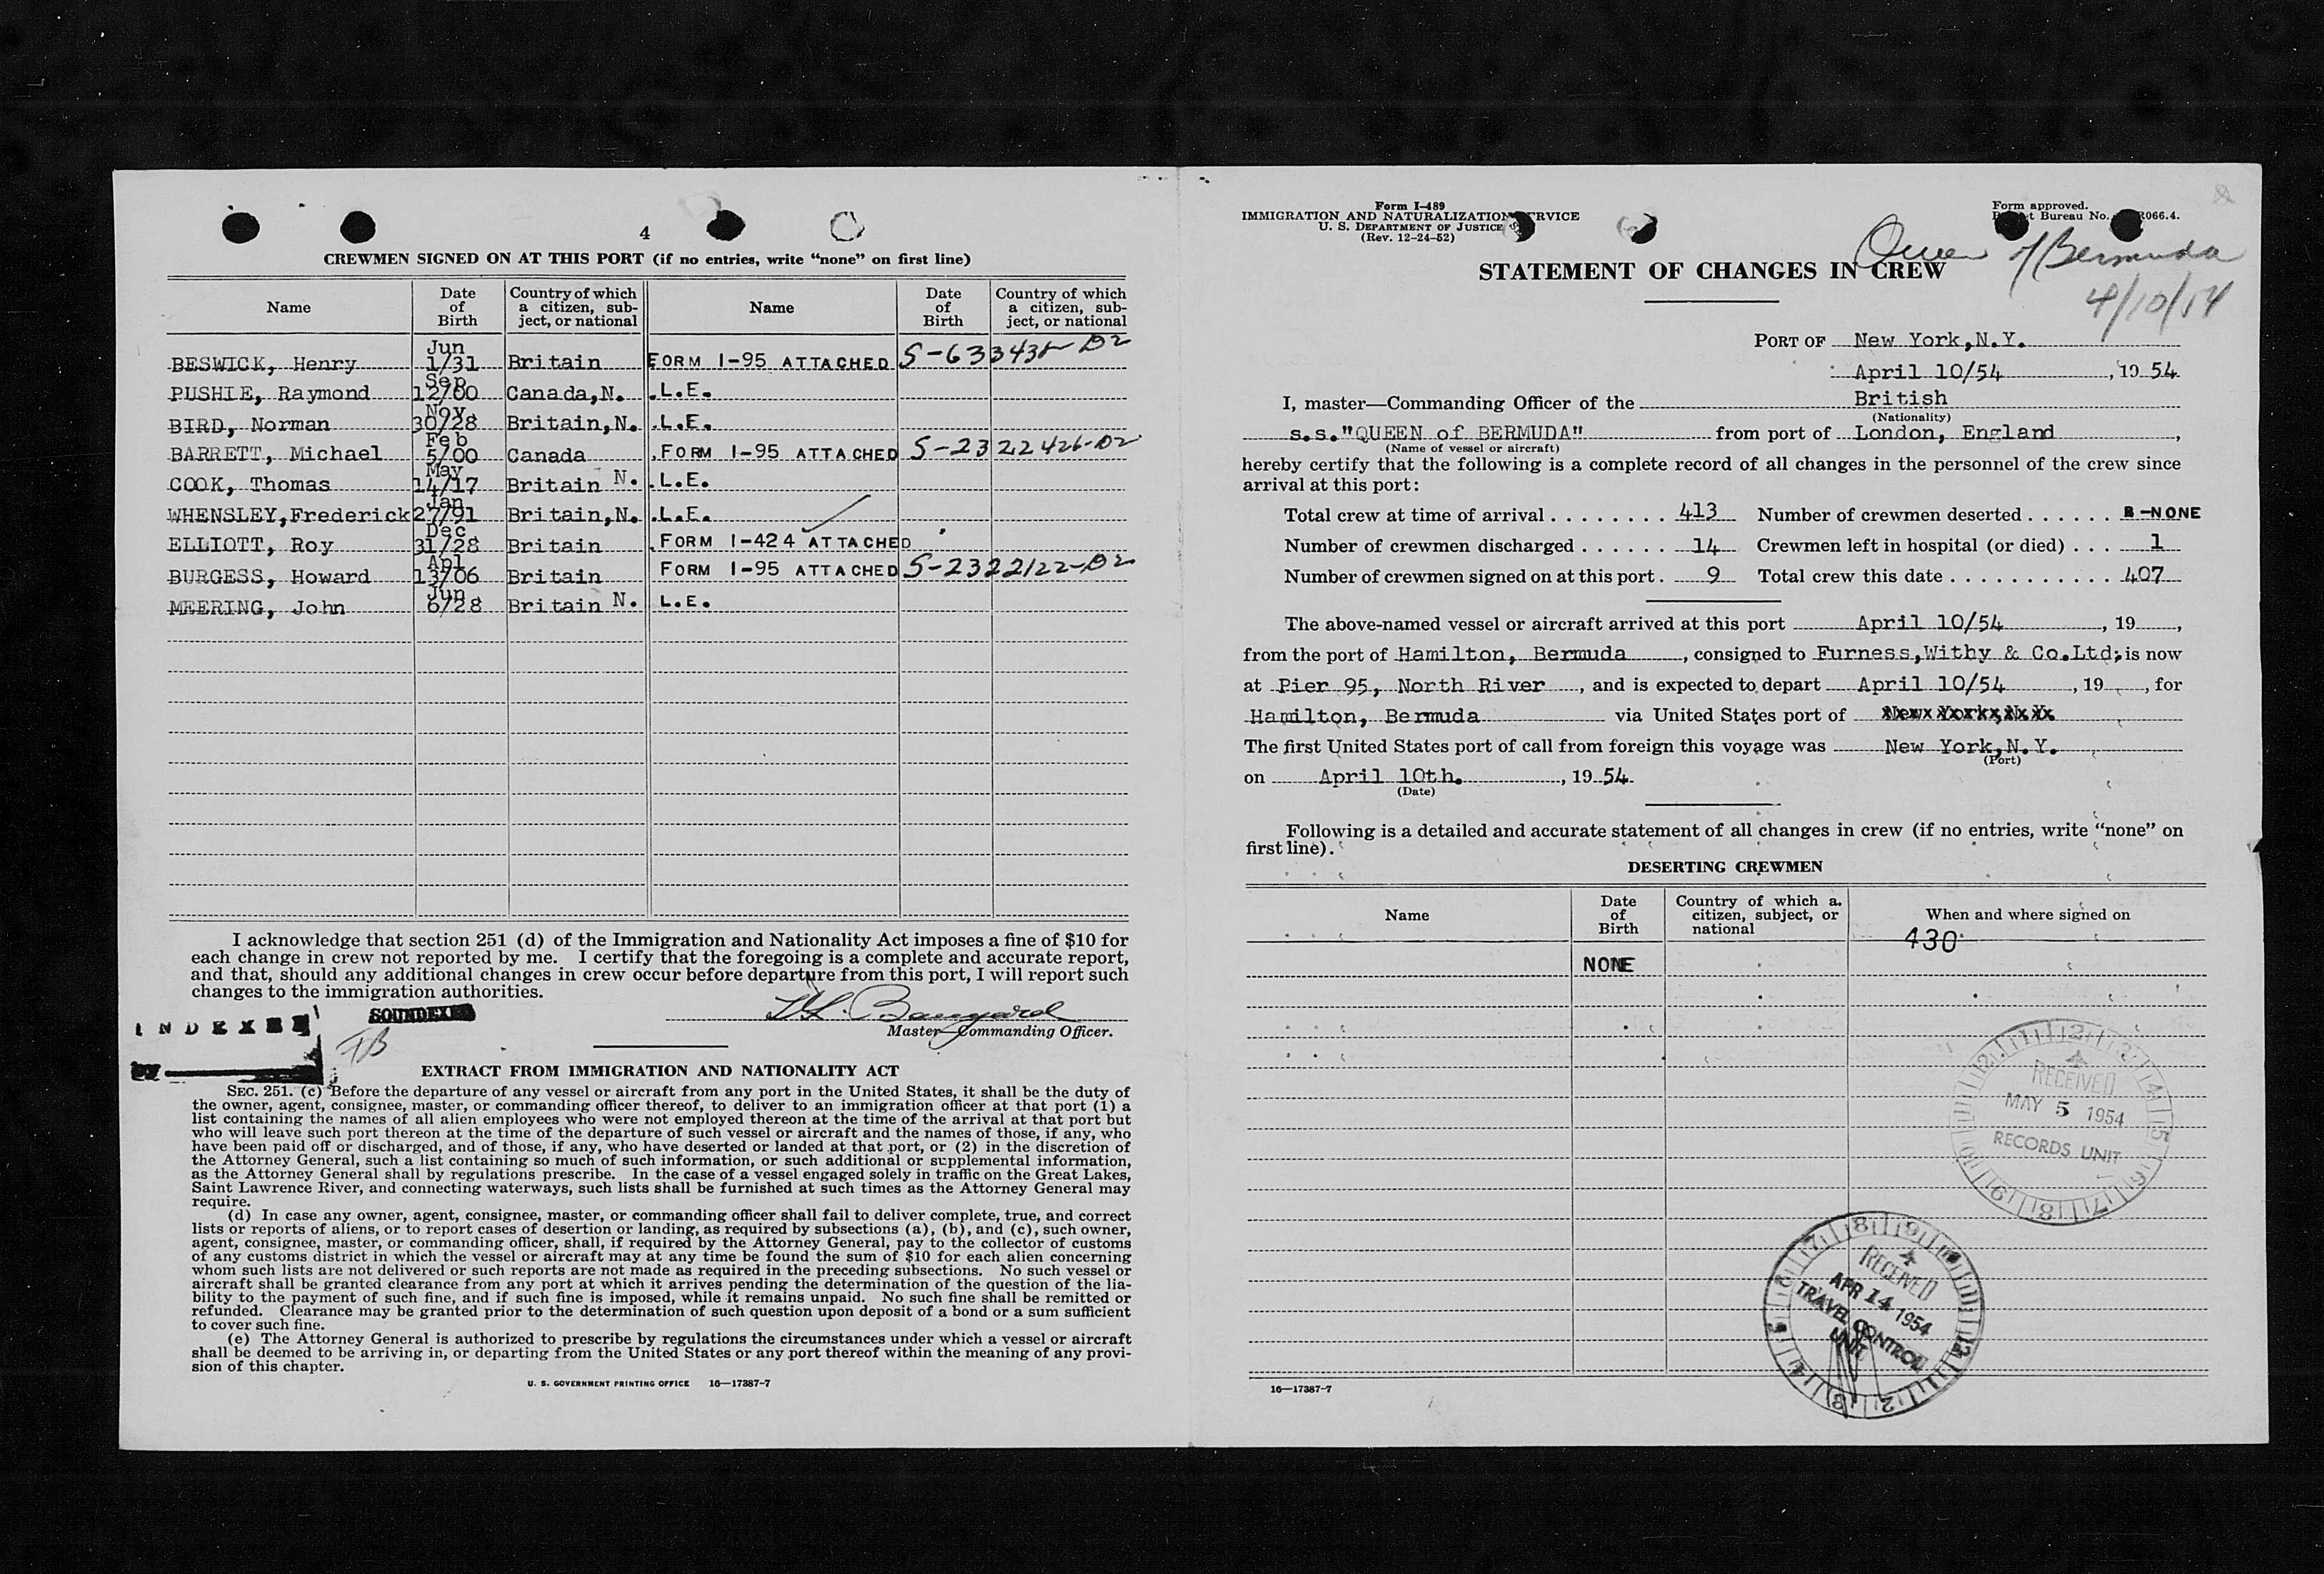 4
CREWMEN SIGNED ON AT THIS PORT (if no entries, write “none” on first line)
Name Date of Birth Country of which a citizen, subject, or national Name Date of Birth Country of which a citizen, subject, or national
BESWICK, Henry Jun 1/31 Britain FORM I-95 ATTACHED
PUSHIE, Raymond Sep 12/00 Canada, N. .L.E.
BIRD, Norman Nov. 30/28 Britain, N. .L.E.
BARRETT, Michael Feb 5/00 Canada .FORM I-95 ATTACHED S-2322426-D2
COOK, Thomas May 14/17 Britain N. .L.E.
WHENSLEY, Frederick Jan 27/91 Britain, N. .L.E.
ELLIOTT, Roy Dec. 31/28 Britain .FORM I-424 ATTACHED
BURGESS, Howard Apl 13/06 Britain FORM I-95 ATTACHED S-2322122-D2
MEERING, John Jun 6/28 Britain N. L.E.
I acknowledge that section 251 (d) of the Immigration and Nationality Act imposes a fine of $10 for
each change in crew not reported by me. I certify that the foregoing is a complete and accurate report,
and that, should any additional changes in crew occur before departure from this port, I will report such
changes to the immigration authorities.
INDEXED
SOUNDEXED
by
Master—Commanding Officer.
EXTRACT FROM IMMIGRATION AND NATIONALITY ACT
SEC. 251. (c) Before the departure of any vessel or aircraft from any port in the United States, it shall be the duty of
the owner, agent, consignee, master, or commanding officer thereof, to deliver to an immigration officer at that port (1) a
list containing the names of all alien employees who were not employed thereon at the time of the arrival at that port but
who will leave such port thereon at the time of the departure of such vessel or aircraft and the names of those, if any, who
have been paid off or discharged, and of those, if any, who have deserted or landed at that port, or (2) in the discretion of
the Attorney General, such a list containing so much of such information, or such additional or supplemental information,
as the Attorney General shall by regulations prescribe. In the case of a vessel engaged solely in traffic on the Great Lakes,
Saint Lawrence River, and connecting waterways, such lists shall be furnished at such times as the Attorney General may
require.
(d) In case any owner, agent, consignee, master, or commanding officer shall fail to deliver complete, true, and correct
lists or reports of aliens, or to report cases of desertion or landing, as required by subsections (a), (b), and (c), such owner,
agent, consignee, master, or commanding officer, shall, if required by the Attorney General, pay to the collector of customs
of any customs district in which the vessel or aircraft may at any time be found the sum of $10 for each alien concerning
whom such lists are not delivered or such reports are not made as required in the preceding subsections. No such vessel or
aircraft shall be granted clearance from any port at which it arrives pending the determination of the question of the lia-
bility to the payment of such fine, and if such fine is imposed, while it remains unpaid. No such fine shall be remitted or
refunded. Clearance may be granted prior to the determination of such question upon deposit of a bond or a sum sufficient
to cover such fine.
(e) The Attorney General is authorized to prescribe by regulations the circumstances under which a vessel or aircraft
shall be deemed to be arriving in, or departing from the United States or any port thereof within the meaning of any provi-
sion of this chapter.
U. S. GOVERNMENT PRINTING OFFICE 16—17387-7
Form I-489
IMMIGRATION AND NATURALIZATION SERVICE
U. S. DEPARTMENT OF JUSTICE
(Rev. 12-24-52)
Form approved.
Bureau No. R066.4.
Queen of Bermuda
4/10/54
STATEMENT OF CHANGES IN CREW
PORT OF New York, N.Y.
April 10/54, 19 54
I, master—Commanding Officer of the British
(Nationality)
s.s."QUEEN of BERMUDA" from port of London, England,
(Name of vessel or aircraft)
hereby certify that the following is a complete record of all changes in the personnel of the crew since
arrival at this port:
Total crew at time of arrival ........ 413 Number of crewmen deserted ...... -NONE
Number of crewmen discharged ...... 14 Crewmen left in hospital (or died) ... 1
Number of crewmen signed on at this port. 9 Total crew this date ........... 407
The above-named vessel or aircraft arrived at this port April 10/54, 19 ,
from the port of Hamilton, Bermuda, consigned to Furness, Withy & Co.Ltd; is now
at Pier 95, North River, and is expected to depart April 10/54, 19 , for
Hamilton, Bermuda via United States port of
The first United States port of call from foreign this voyage was New York, N.Y.
(Port)
on April 10th., 19 54
(Date)
Following is a detailed and accurate statement of all changes in crew (if no entries, write “none” on
first line).
DESERTING CREWMEN
Name Date of Birth Country of which a citizen, subject, or national When and where signed on
430
NONE
RECEIVED
MAY 5 1954
RECORDS UNIT
RECEIVED
APR 14 1954
TRAVEL CONTROL
UNIT
16—17387-7